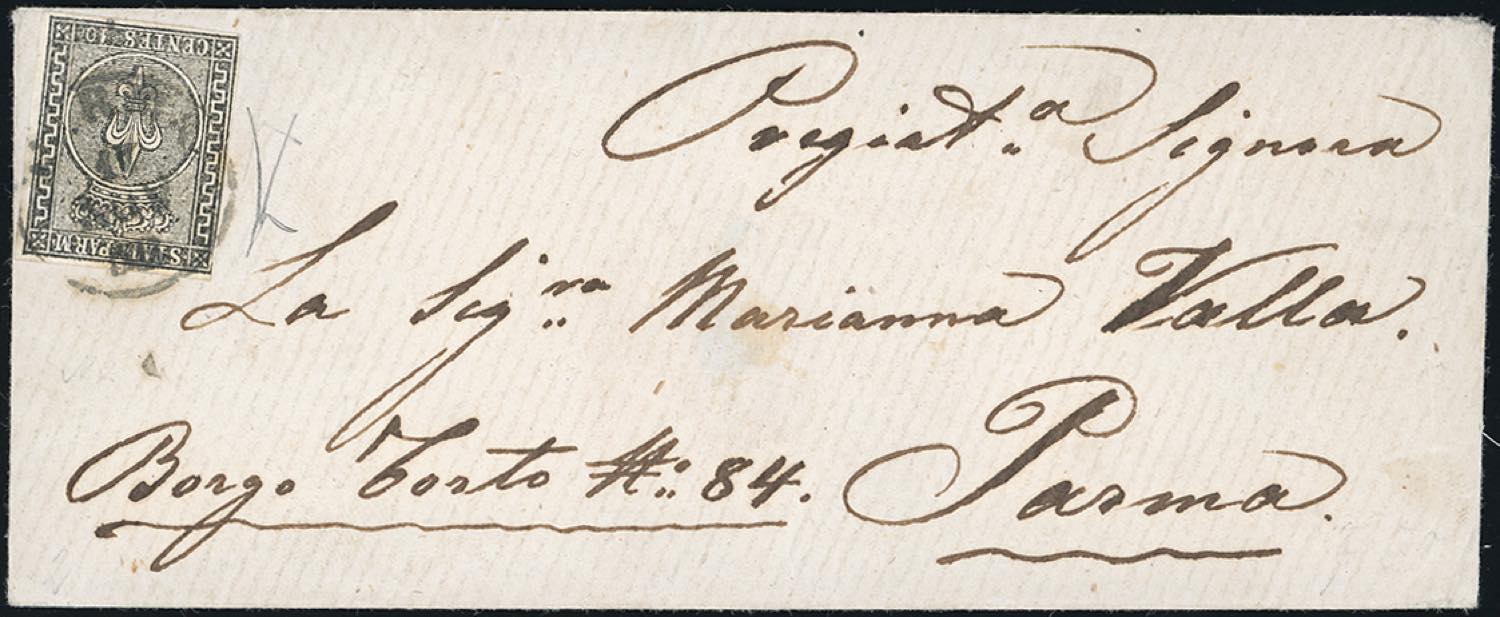 CENTES. 10
STATI PARM.
Pregiat.a Signora
La Sig.ra Marianna Valla.
Borgo Torto No. 84. Parma.